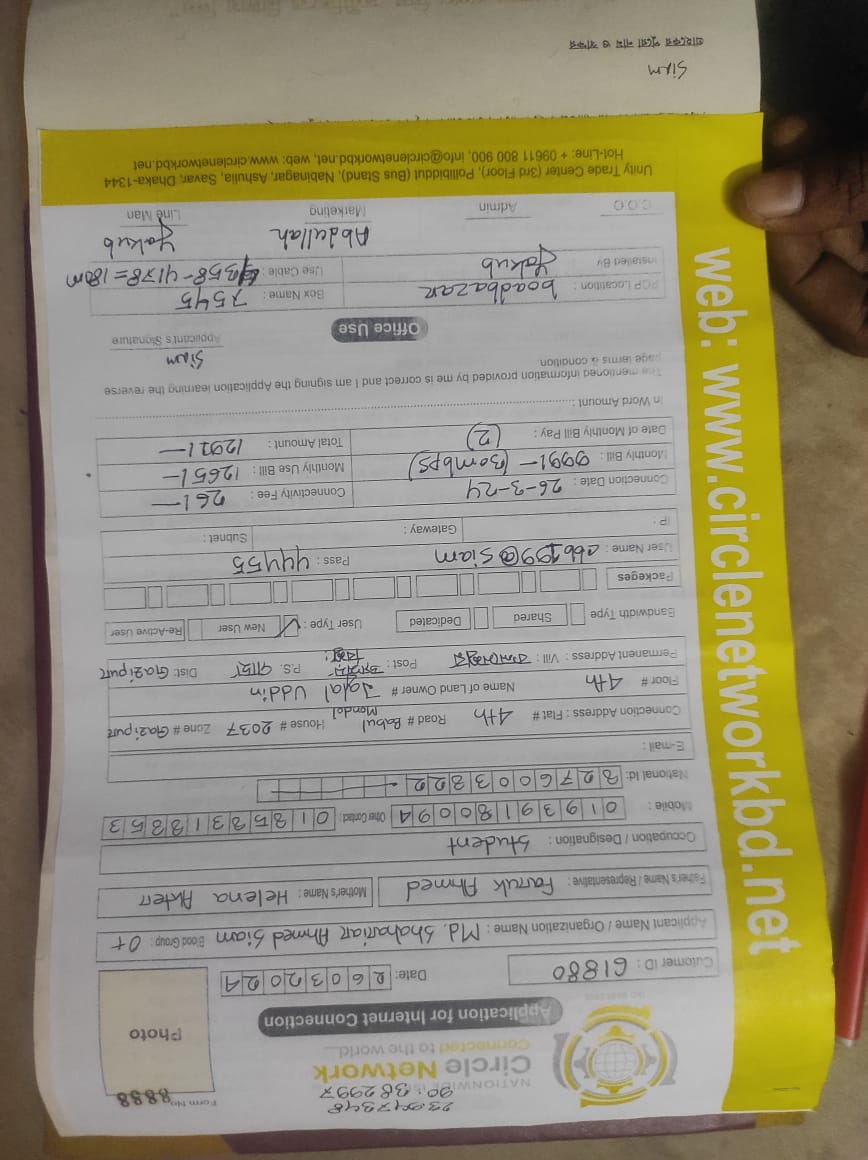 web: www.circlenetworkbd.net
Form No. 8888
23.947348
90.382997
NATIONWIDE
Circle Network
Connected to the world
Photo
Application for Internet Connection
Cutomer ID : 61880
Date: 26032024
Applicant Name / Organization Name : Md. Shahariar Ahmed Siam Blood Group : O+
Father's Name / Representative : Faruk Ahmed Mother's Name : Helena Akter
Occupation / Designation : Student
Mobile : 01939180094 Other Contact :
National Id:
E-mail :
Connection Address : Flat # 4th Road # Babul Mondol House # 2037 Zone # Gazipur
Floor # 4th Name of Land Owner # Jalal Uddin
Permanent Address : Vill : Post : P.S. Dist: Gazipur
Bandwidth Type Shared Dedicated User Type : New User Re-Active User
Packeges
User Name : abb199@siam Pass : 44455
IP : Gateway : Subnet :
Connection Date : 26-3-24 Connectivity Fee : 26/-
Monthly Bill : 999/- (30mbps) Monthly Use Bill : 1265/-
Date of Monthly Bill Pay : (2) Total Amount : 1291/-
In Word Amount :
The mentioned information provided by me is correct and I am signing the Application learning the reverse
page terms & condition.
Siam
Applicant's Signature
Office Use
POP Location : boadbazar Box Name : 7545
Installed By Yakub Use Cable : 4358-4178=180m
Abdullah Yakub
C.O.O Admin Marketing Line Man
Unity Trade Center (3rd Floor), Pollibiddut (Bus Stand), Nabinagar, Ashulia, Savar, Dhaka-1344
Hot-Line: + 09611 800 900, info@circlenetworkbd.net, web: www.circlenetworkbd.net
Siam
গ্রাহকের পুরো নাম ও স্বাক্ষর